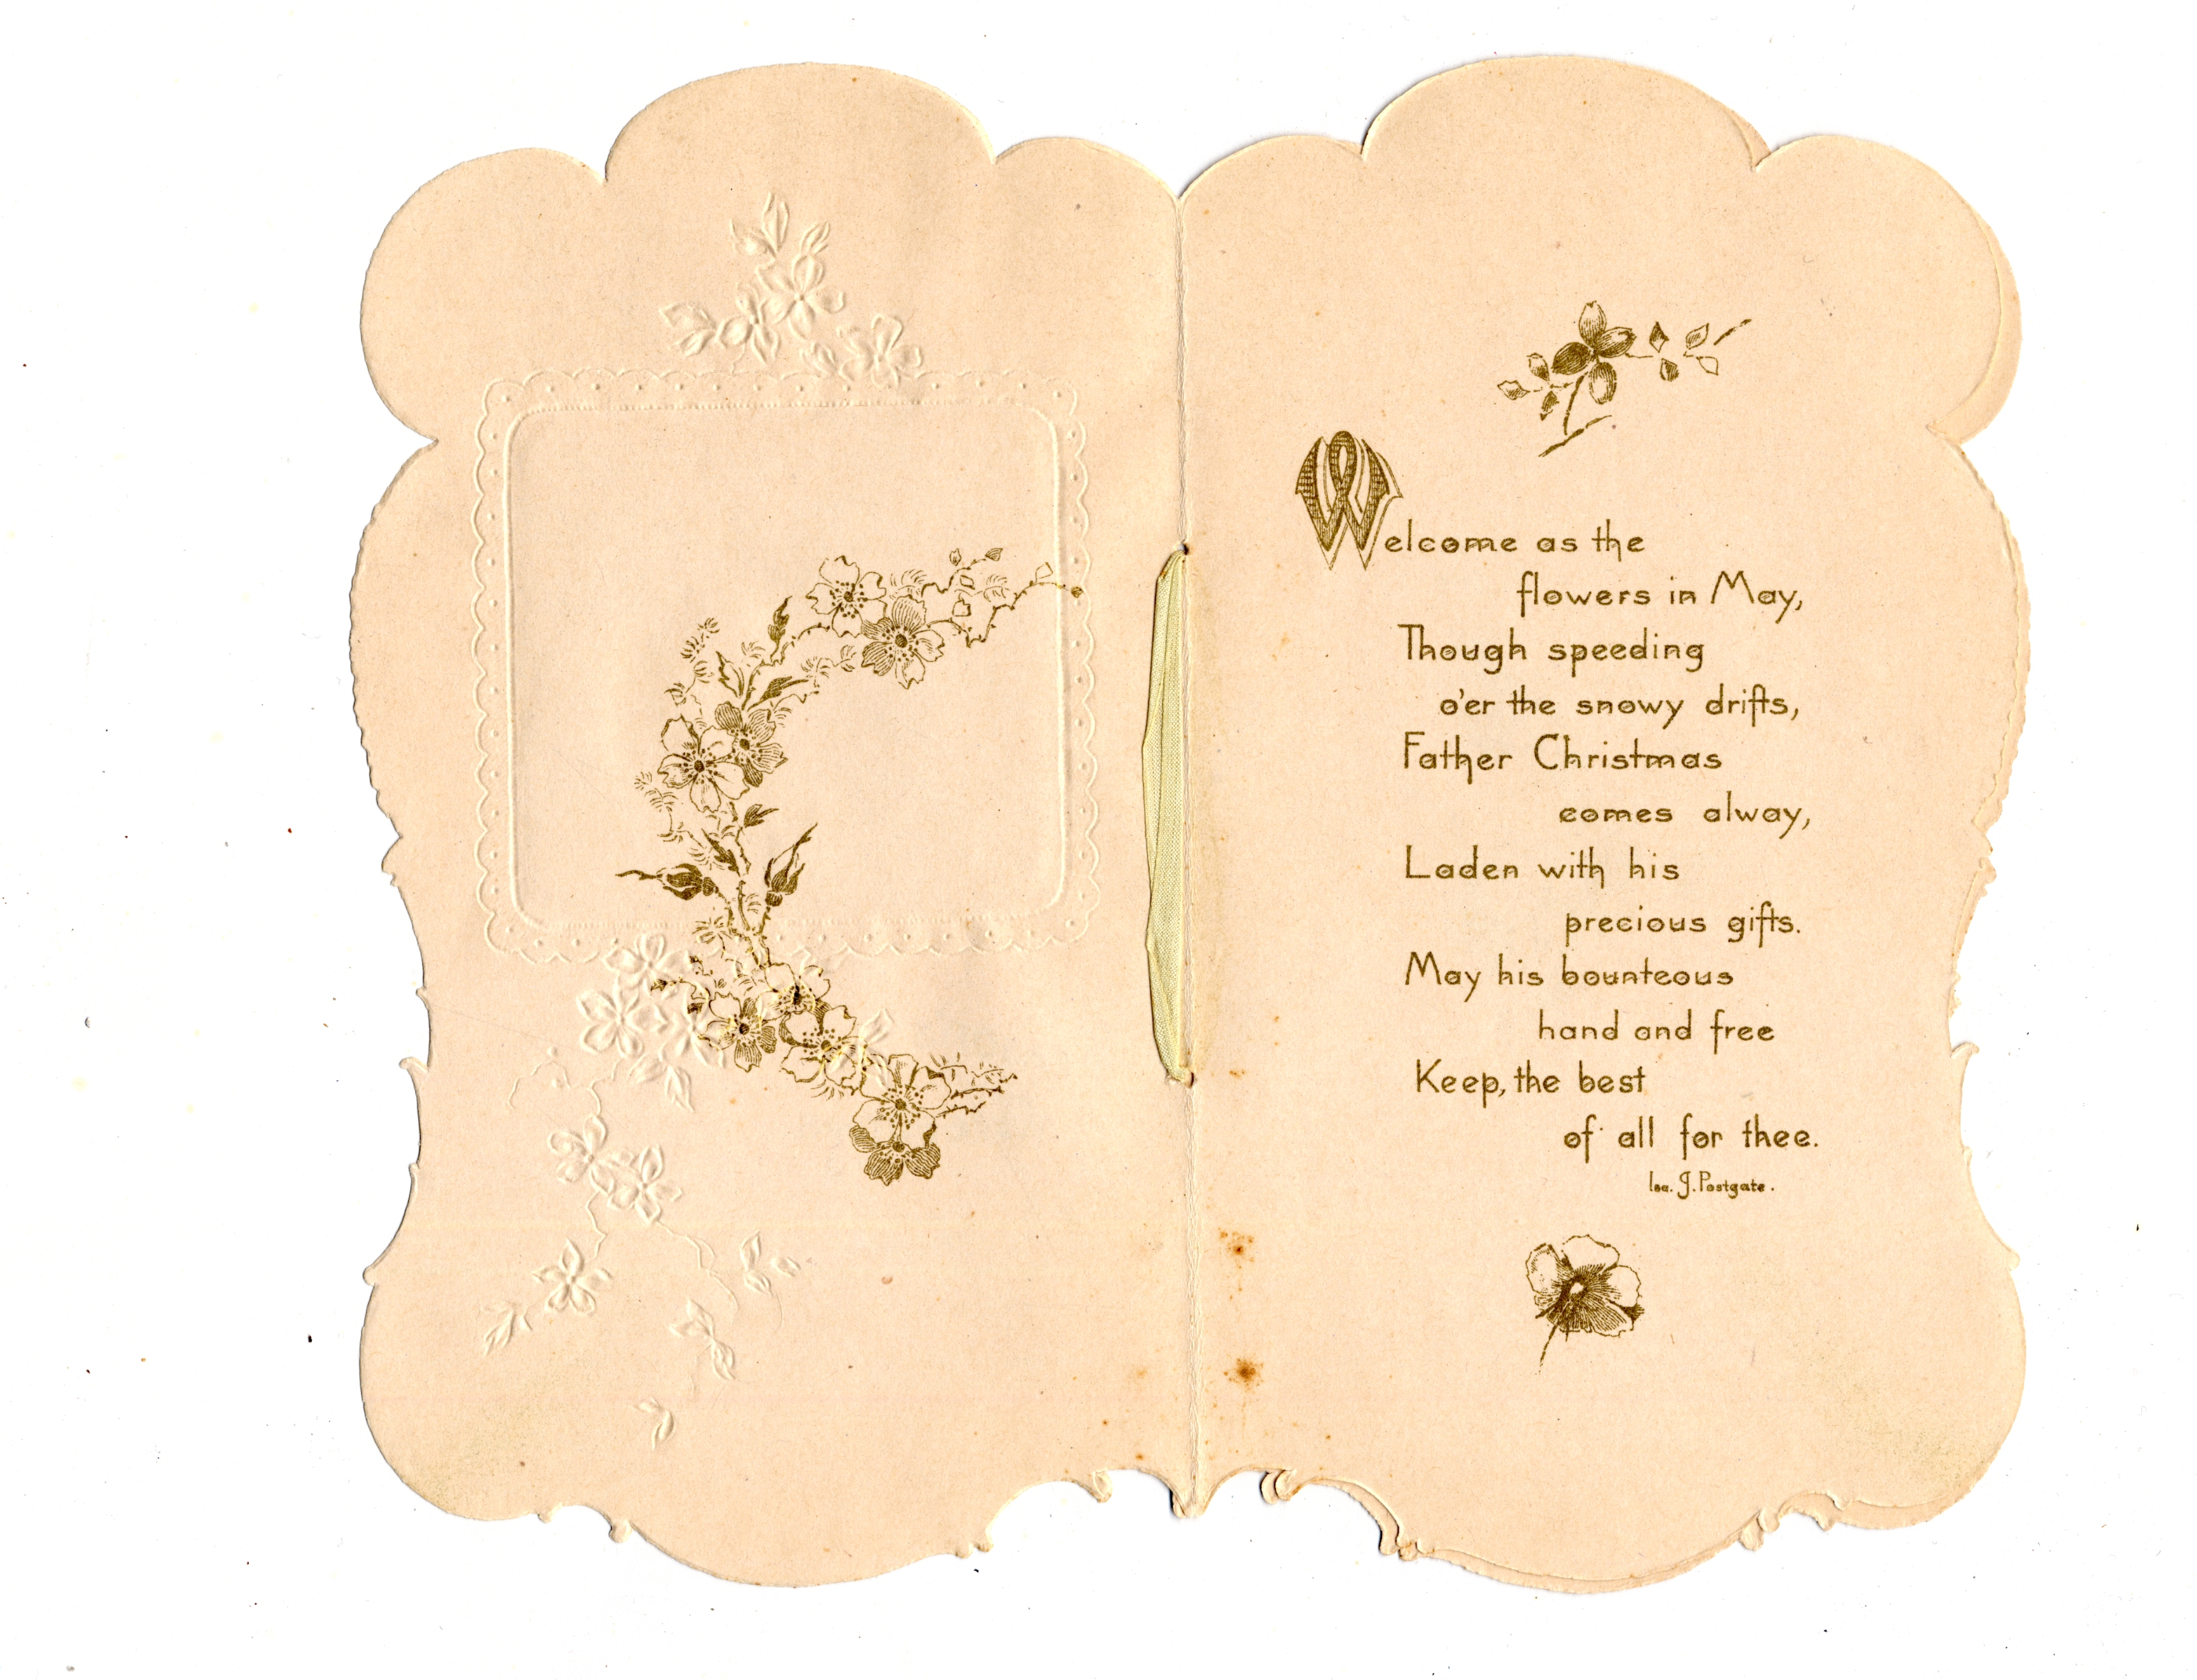 Welcome as the
flowers in May,
Though speeding
o'er the snowy drifts,
Father Christmas
comes alway,
Laden with his
precious gifts.
May his bounteous
hand and free
Keep, the best
of all for thee.
Isa. J. Postgate.